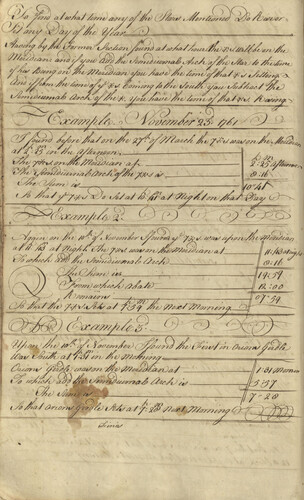 To find at what time any of the Stars Mentioned Do Rise or
Set any Day of the Year
Having by the Former Lesson found at what hour the Star will be on the
Meridian and if you add the Semidiurnal Arch of the Star to the time
of his Being on the Meridian You have the time of that Stars Setting
And if from the time of Stars coming to the South you Subtract the
Semidiurnal Arch of the You have the time of that Stars Rising
Example November 23 1761
I found before that on the 27th of March the 7*s was on the Meridian
at in the afternoon
The 7*s on the Meridian at
The Semidiurnal Arch of the 7*s is 8:16
The Sum is 10:41
So that the 7*s Do Set at at Night on that Day
Example 2
Again on the of November I found the 7*s was upon the Meridian
at at Night The 7*s was on the Meridian at 11:43 Night
To which add the Semidiurnal Arch 8:16
The Sum is 19:59
From which abate 12:00
Remains 07:59
So that the 7*s Sets at 7:59 the next Morning
Example 3
Upon the of November I found the First in Orions Girdle
Was South at 1:31 in the Morning
Orions Girdle was on the Meridian at 1:31 Morning
To which add the Semidiurnal Arch is 5:57
The Sum is 7:28
So that Orions Girdle Sets at 7:28 next Morning
Finis